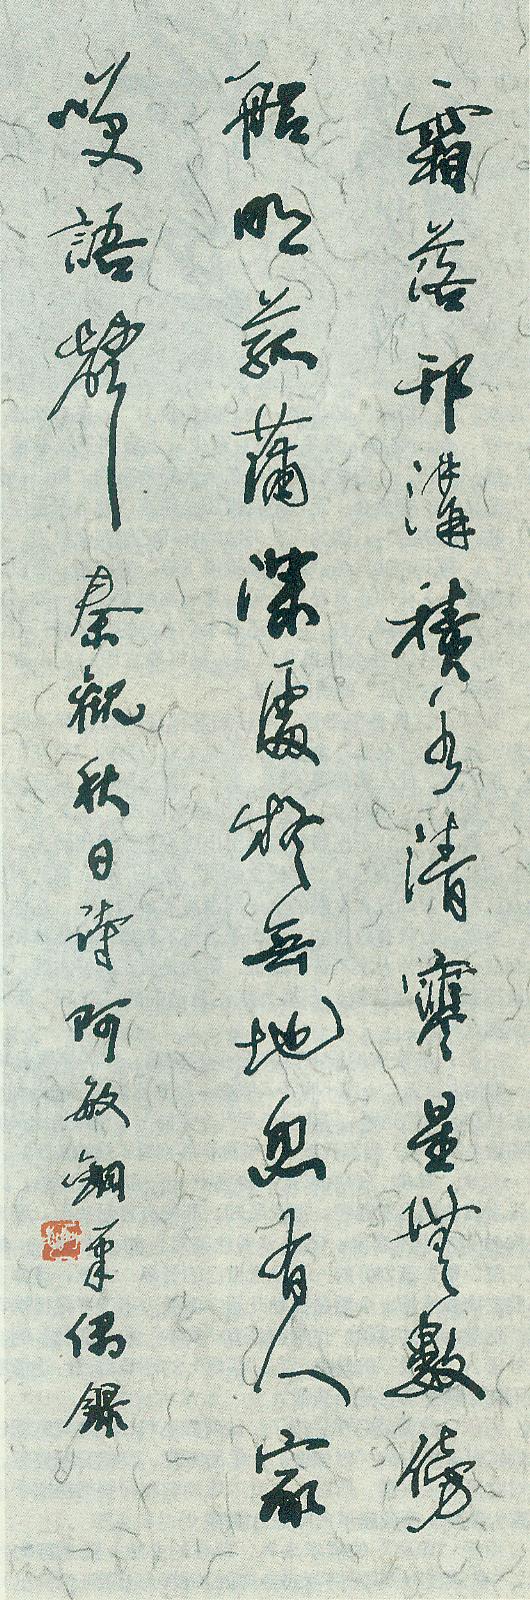 霜落邗溝積水清寒星無數傍
船明菰蒲深處疑無地忽有人家
咲語聲 秦觀秋日詩阿敏鋼筆偶錄